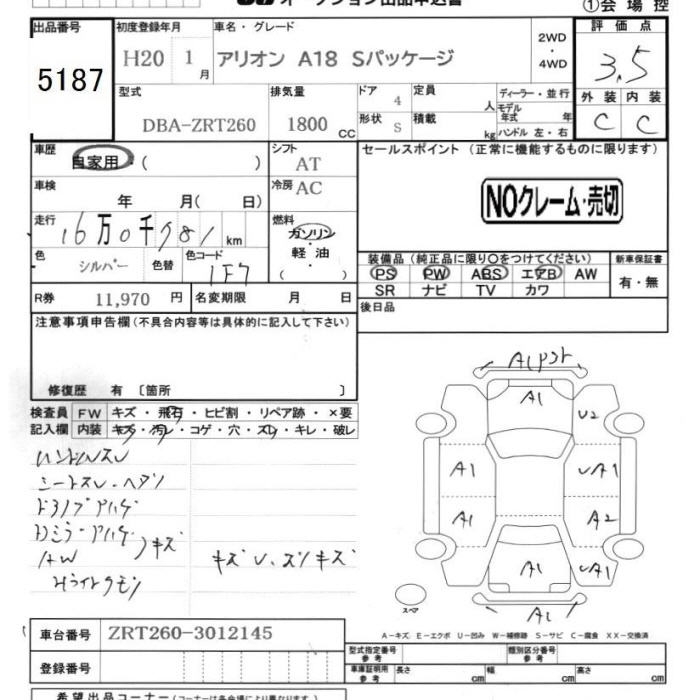 オークション出品申込書
①会場控
出品番号 初度登録年月 車名・グレード 2WD・4WD 評価点
5187 H20 1月 アリオン A18 Sパッケージ 3.5
型式 排気量 ドア 定員 ディーラー・並行 外装 内装
DBA-ZRT260 1800 CC 4 人 モデル年式 年 C C
形状 S 積載 kg ハンドル 左・右
車歴 自家用・( ) シフト AT セールスポイント (正常に機能するものに限ります)
車検 年 月( 日) 冷房 AC
NOクレーム・売切
走行 16万0千781 km 燃料 ガソリン・軽油 ( )
色 シルバー 色替 色コード 1F7
装備品 (純正品に限り○をつけてください) 新車保証書
PS PW ABS エアB AW 有・無
SR ナビ TV カワ
R券 11,970 円 名変期限 月 日
後日品
注意事項申告欄 (不具合内容等は具体的に記入して下さい)
修復歴 有 〔箇所 〕
検査員 FW キズ・飛石・ヒビ割・リペア跡・×要
記入欄 内装 キズ・汚レ・コゲ・穴・ズレ・キレ・破レ
ハンドルスレ
シートスレ・ヘタリ
AW キズ
キズ U、スリキズ
A1
A1 U2
A1 A1
A1 A2
A1 A1
A1
スペア
A−キズ E−エクボ U−凹み W−補修跡 S−サビ C−腐食 XX−交換済
車台番号 ZRT260-3012145
登録番号
型式指定番号 参考 類別区分番号 参考
車庫証明用 参考 長さ cm 幅 cm 高さ cm
希望出品コーナー (コーナーは各会場により異なります)